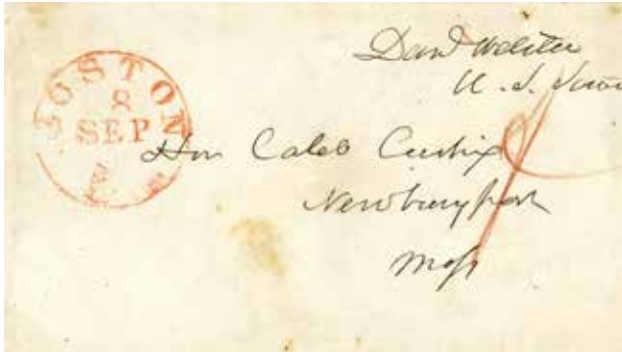 Danl Webster
U. S. Senate
BOSTON
8
SEP
Hon Caleb Cushing
Newburyport
Mass